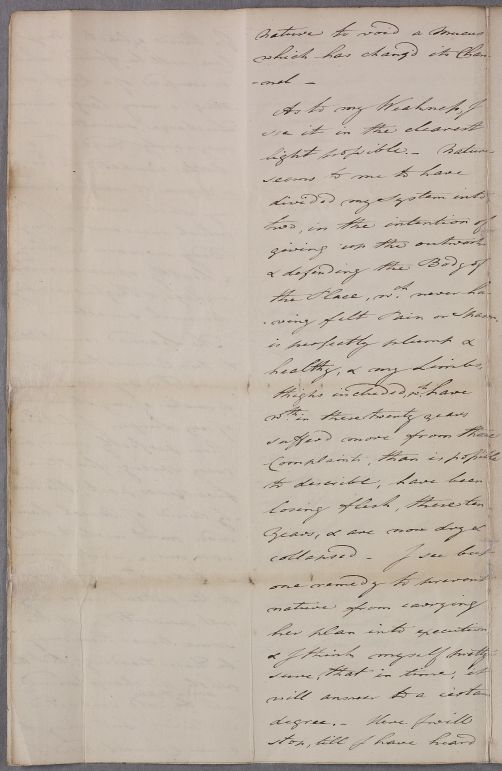 nature to void a Mucus
which has changd its Chan-
-nel -
As to my Weakness, I
see it in the clearest
light possible. - Nature
seems to me to have
divided my System into
two, in the intention of
giving up the outworks
& defending the Body of
the Place, wch. never ha-
-ving felt Pain or Spasm,
is perfectly plump &
healthy, & my Limbs,
thighs included, wch. have
wth.in these twenty years
sufferd more from these
Complaints, than is possible
to describe, have been
losing flesh, these ten
years, & are now dryd &
collapsed - I see but
one remedy to prevent
nature from carrying
her plan into execution
& I think myself pretty
sure, that in time, it
will answer to a certain
degree. - Here I will
stop, till I have heard